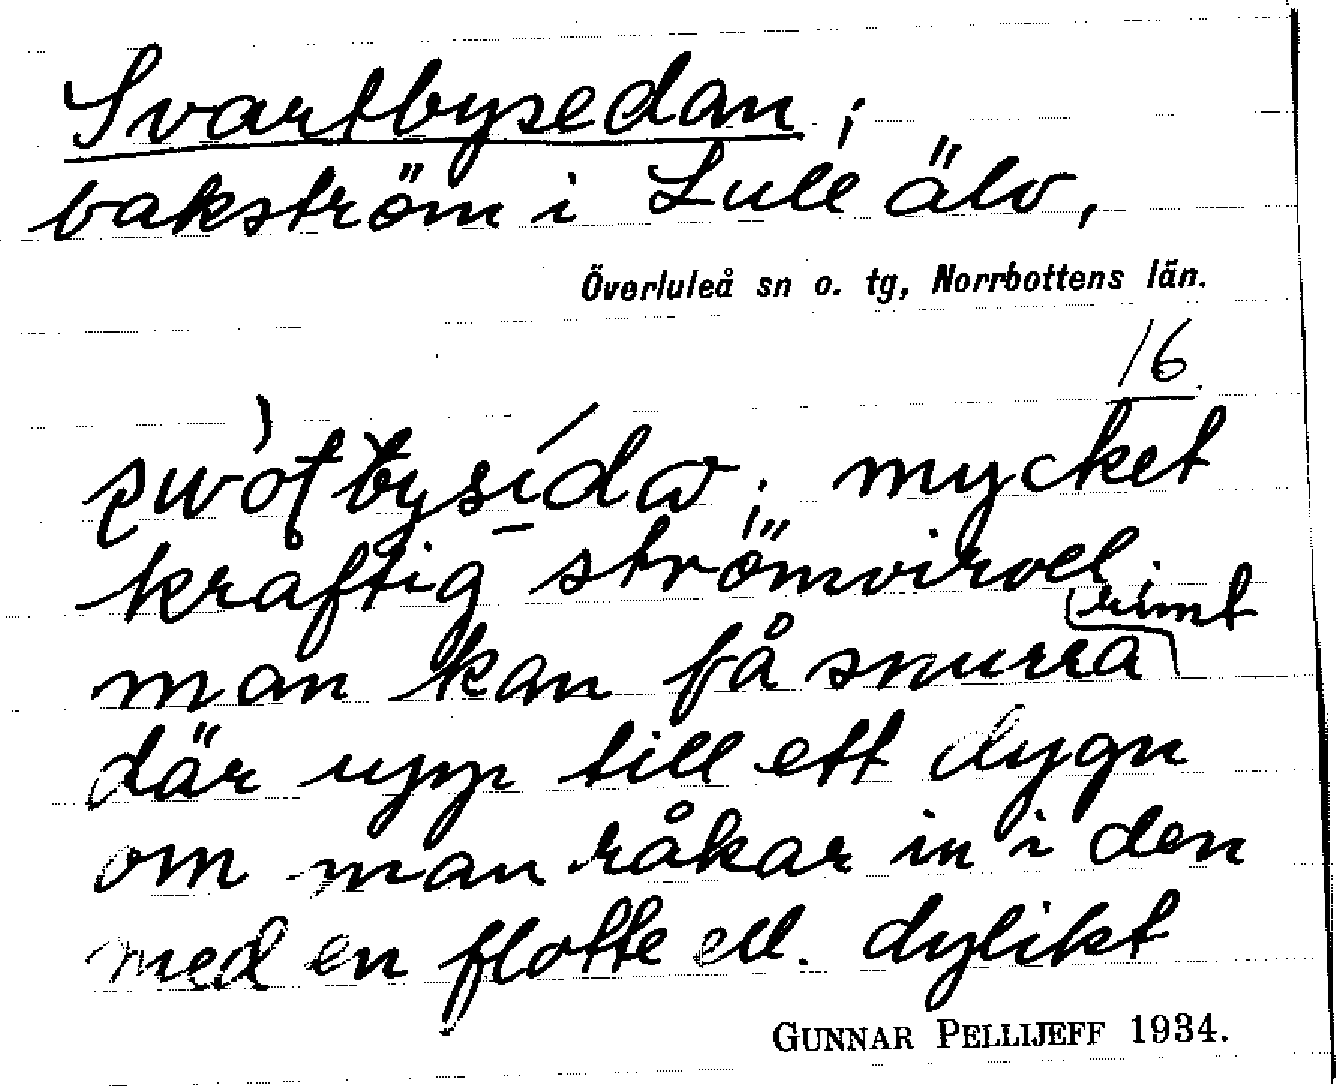 Svartbysedan ;
bakström i Lule älv,
Överluleå sn o. tg, Norrbottens län.
16.
mycket
kraftig strömvirvel.
man kan få snurra runt
där upp till ett dygn
om man råkar in i den
med en flotte ell. dylikt
GUNNAR PELLIJEFF 1934.